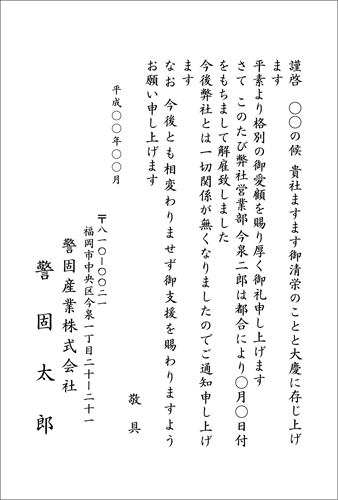 謹啓　〇〇の候 貴社ますます御清栄のことと大慶に存じ上げ
ます
平素より格別の御愛顧を賜り厚く御礼申し上げます
さて このたび弊社営業部 今泉二郎は都合により〇月〇日付
をもちまして解雇致しました
今後弊社とは一切関係が無くなりましたのでご通知申し上げ
ます
なお 今後とも相変わりませず御支援を賜わりますよう
お願い申し上げます
敬具
平成〇〇年〇〇月
〒八一〇－〇〇二一
福岡市中央区今泉一丁目二十－二十一
警固産業株式会社
警固太郎